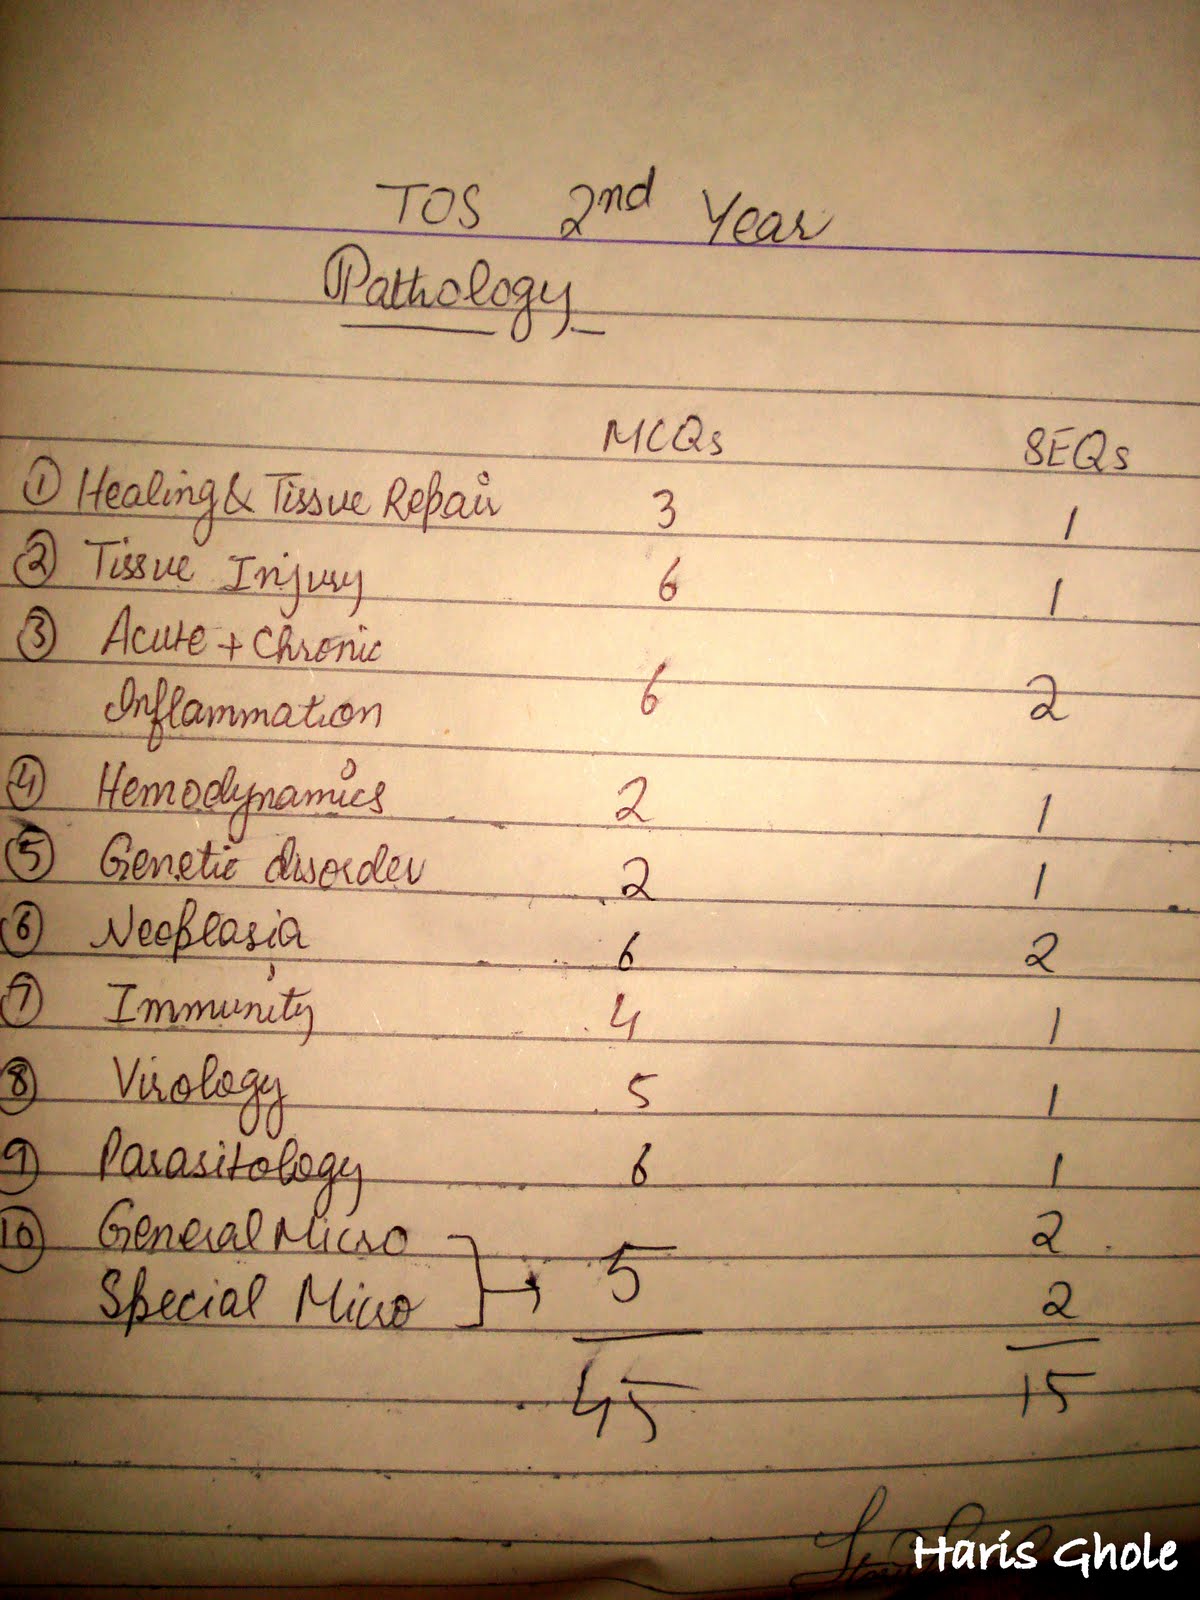 TOS 2nd Year
Pathology
MCQs SEQs
1 Healing & Tissue Repair 3 1
2 Tissue Injury 6 1
3 Acute + Chronic
Inflammation 6 2
4 Hemodynamics 2 1
5 Genetic disorder 2 1
6 Neoplasia 6 2
7 Immunity 4 1
8 Virology 5 1
9 Parasitology 6 1
10 General Micro 2
Special Micro → 5 2
45 15
Haris Ghole